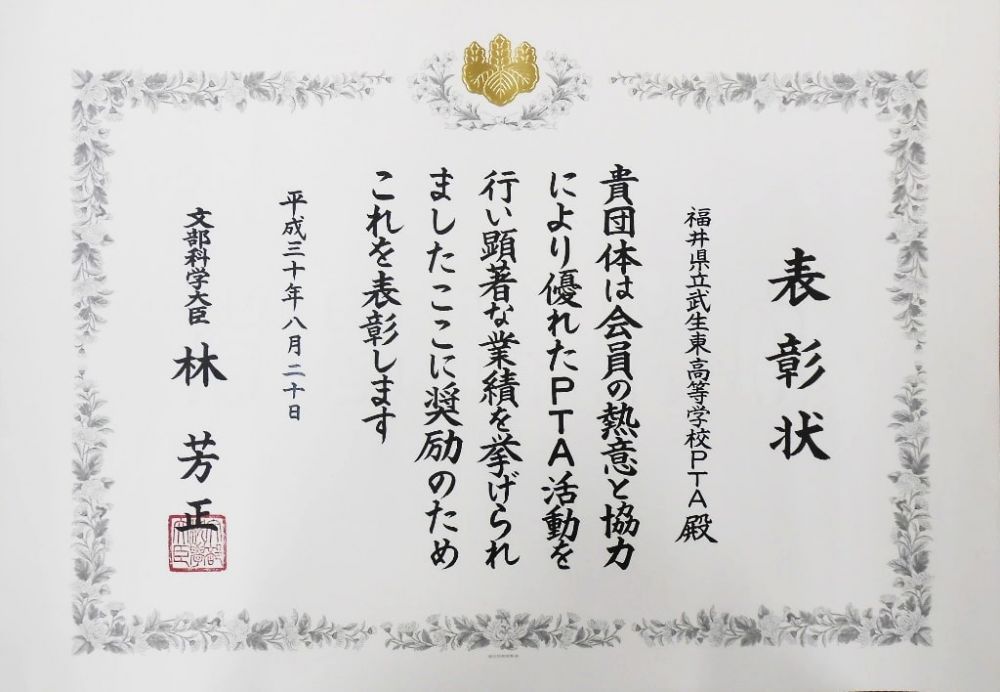 表彰状
福井県立武生東高等学校PTA殿
貴団体は会員の熱意と協力
により優れたPTA活動を
行い顕著な業績を挙げられ
ましたここに奨励のため
これを表彰します
平成三十年八月二十日
文部科学大臣 林 芳正